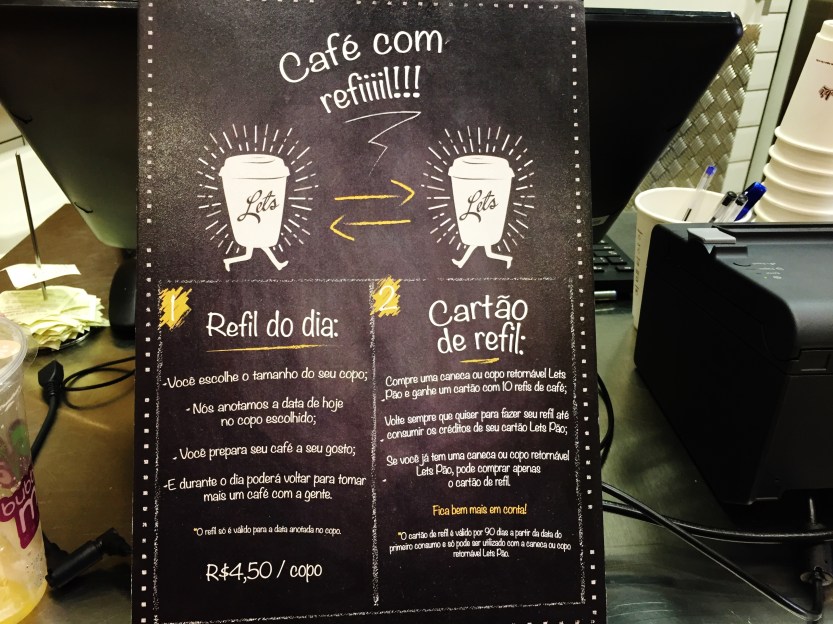 Café com
refiiiil!!!
Lets
Lets
1
Refil do dia:
-Você escolhe o tamanho do seu copo;
- Nós anotamos a data de hoje
no copo escolhido;
- Você prepara seu café a seu gosto;
-E durante o dia poderá voltar para tomar
mais um café com a gente.
*O refil só é válido para a data anotada no copo.
R$4,50 / copo
2
Cartão
de refil:
Compre uma caneca ou copo retornável Lets
Pão e ganhe um cartão com 10 refis de café;
-
Volte sempre que quiser para fazer seu refil até
consumir os créditos de seu cartão Lets Pão;
-
Se você já tem uma caneca ou copo retornável
Lets Pão, pode comprar apenas
- o cartão de refil.
Fica bem mais em conta!
*O cartão de refil é válido por 90 dias a partir da data do
primeiro consumo e só pode ser utilizado com a caneca ou copo
retornável Lets Pão.